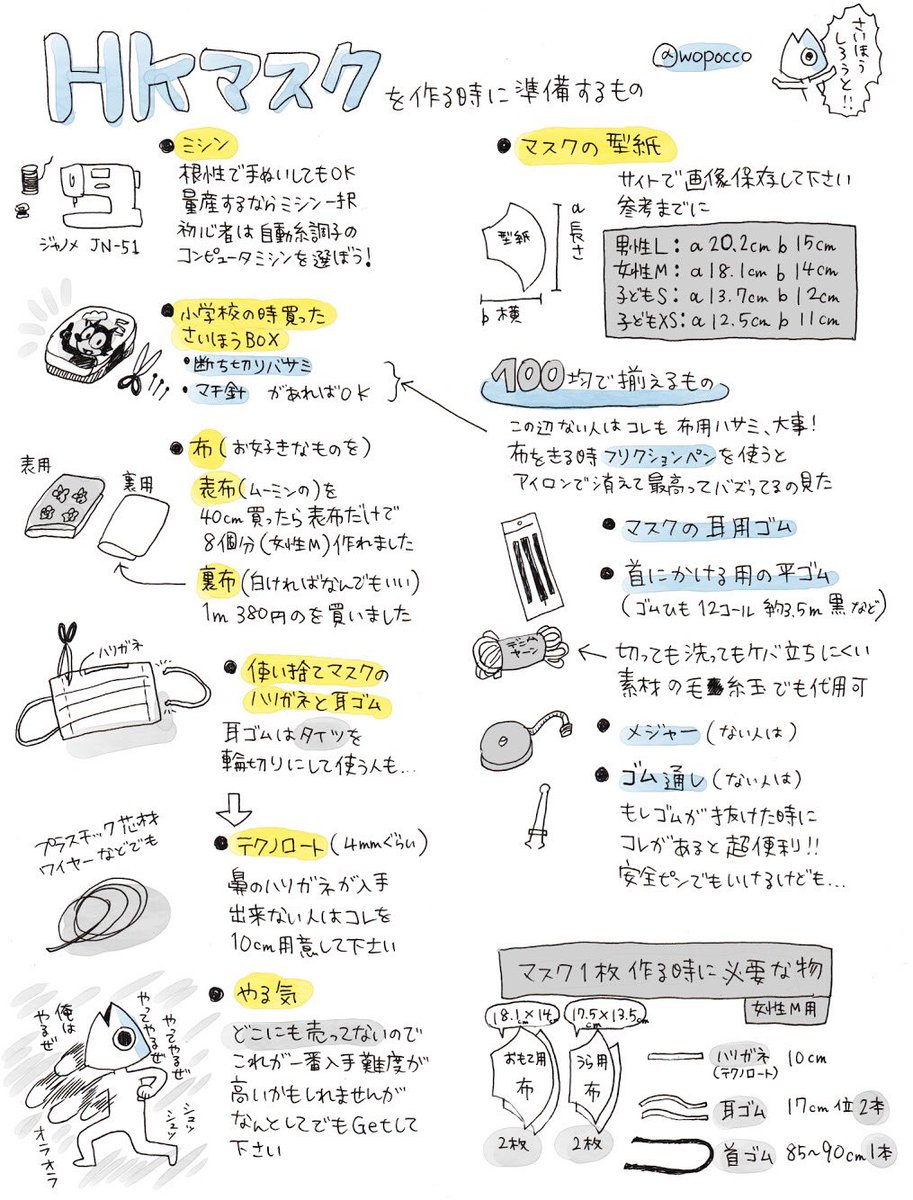 HKマスクを作る時に準備するもの
@wopocco
さいほう
しろうと!!
●ミシン
根性で手ぬいしてもOK
量産するならミシン一択
初心者は自動糸調子の
コンピュータミシンを選ぼう!
ジャノメ JN-51
●小学校の時買った
さいほうBOX
・断ち切りバサミ
・マチ針 があればOK
●布(お好きなものを)
表用
裏用
表布(ムーミンの)を
40cm買ったら表布だけで
8個分(女性M)作れました
裏布(白ければなんでもいい)
1m 380円のを買いました
ハリガネ
●使い捨てマスクの
ハリガネと耳ゴム
耳ゴムはタイツを
輪切りにして使う人も…
プラスチック芯材
ワイヤーなどでも
●テクノロート(4mmぐらい)
鼻のハリガネが入手
出来ない人はコレを
10cm用意して下さい
●やる気
どこにも売ってないので
これが一番入手難度が
高いかもしれませんが
なんとしてでもGetして
下さい
やってやるぜ
やってやるぜ
俺は
やるぜ
シュッ
シュッ
オラオラ
●マスクの型紙
サイトで画像保存して下さい
参考までに
型紙
a 長さ
b 横
男性L: a 20.2cm b 15cm
女性M: a 18.1cm b 14cm
子どもS: a 13.7cm b 12cm
子どもXS: a 12.5cm b 11cm
100均で揃えるもの
この辺ない人はコレも 布用ハサミ、大事!
布を切る時フリクションペンを使うと
アイロンで消えて最高ってバズってるの見た
●マスクの耳用ゴム
●首にかける用の平ゴム
(ゴムひも 12コール 約3.5m 黒 など)
デニム
ヤーン
切っても洗ってもケバ立ちにくい
素材の毛糸玉でも代用可
●メジャー(ない人は)
●ゴム通し(ない人は)
もしゴムが抜けた時に
コレがあると超便利!!
安全ピンでもいけるけども…
マスク1枚作る時に必要な物
女性M用
18.1×14cm
17.5cm×13.5cm
おもて用
布
2枚
うら用
布
2枚
ハリガネ 10cm
(テクノロート)
耳ゴム 17cm位 2本
首ゴム 85〜90cm 1本